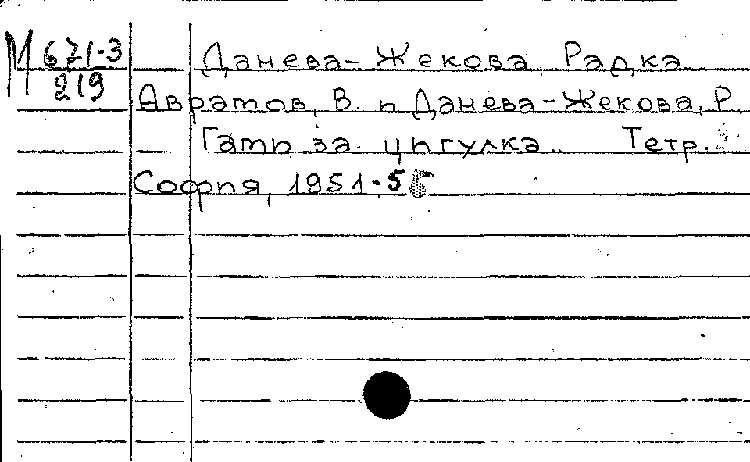 М 671-3
219
Данева-Жекова Радка
Авратов, В. и Данева-Жекова, Р.
Гами за цигулка. Тетр.
София, 1951.5